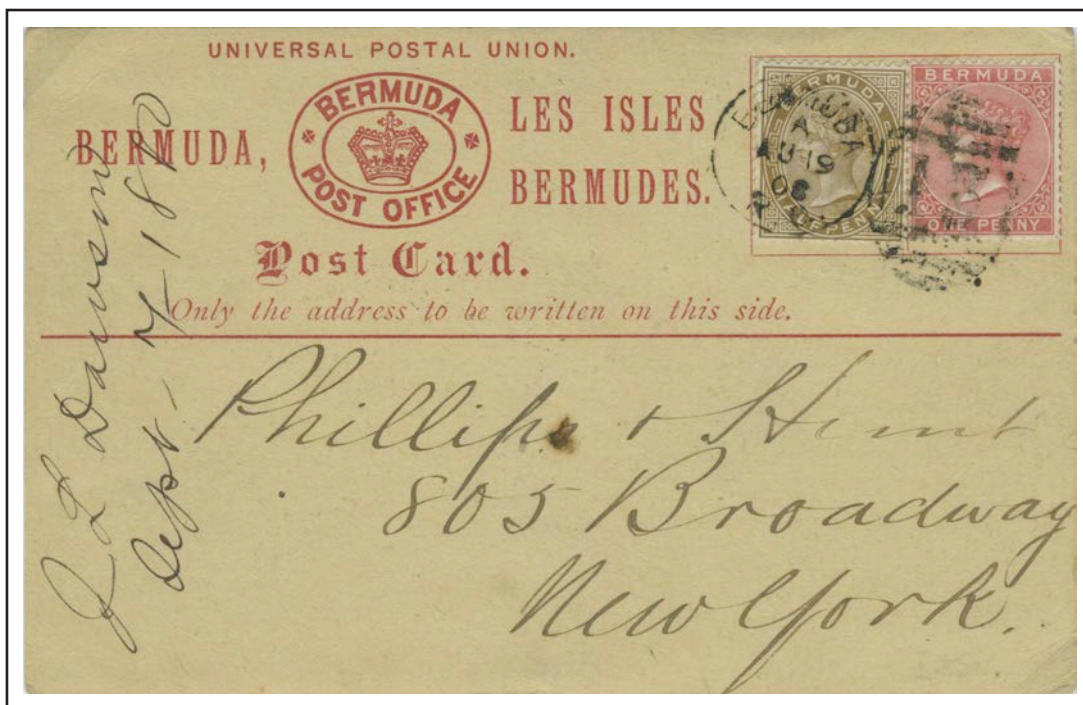 UNIVERSAL POSTAL UNION.
BERMUDA,
BERMUDA
POST OFFICE
LES ISLES
BERMUDES.
Post Card.
Only the address to be written on this side.
BERMUDA
HALFPENNY
BERMUDA
ONE PENNY
BERMUDA
A
AU 19
Phillips & Hunt
805 Broadway
New York.
J L
Sept